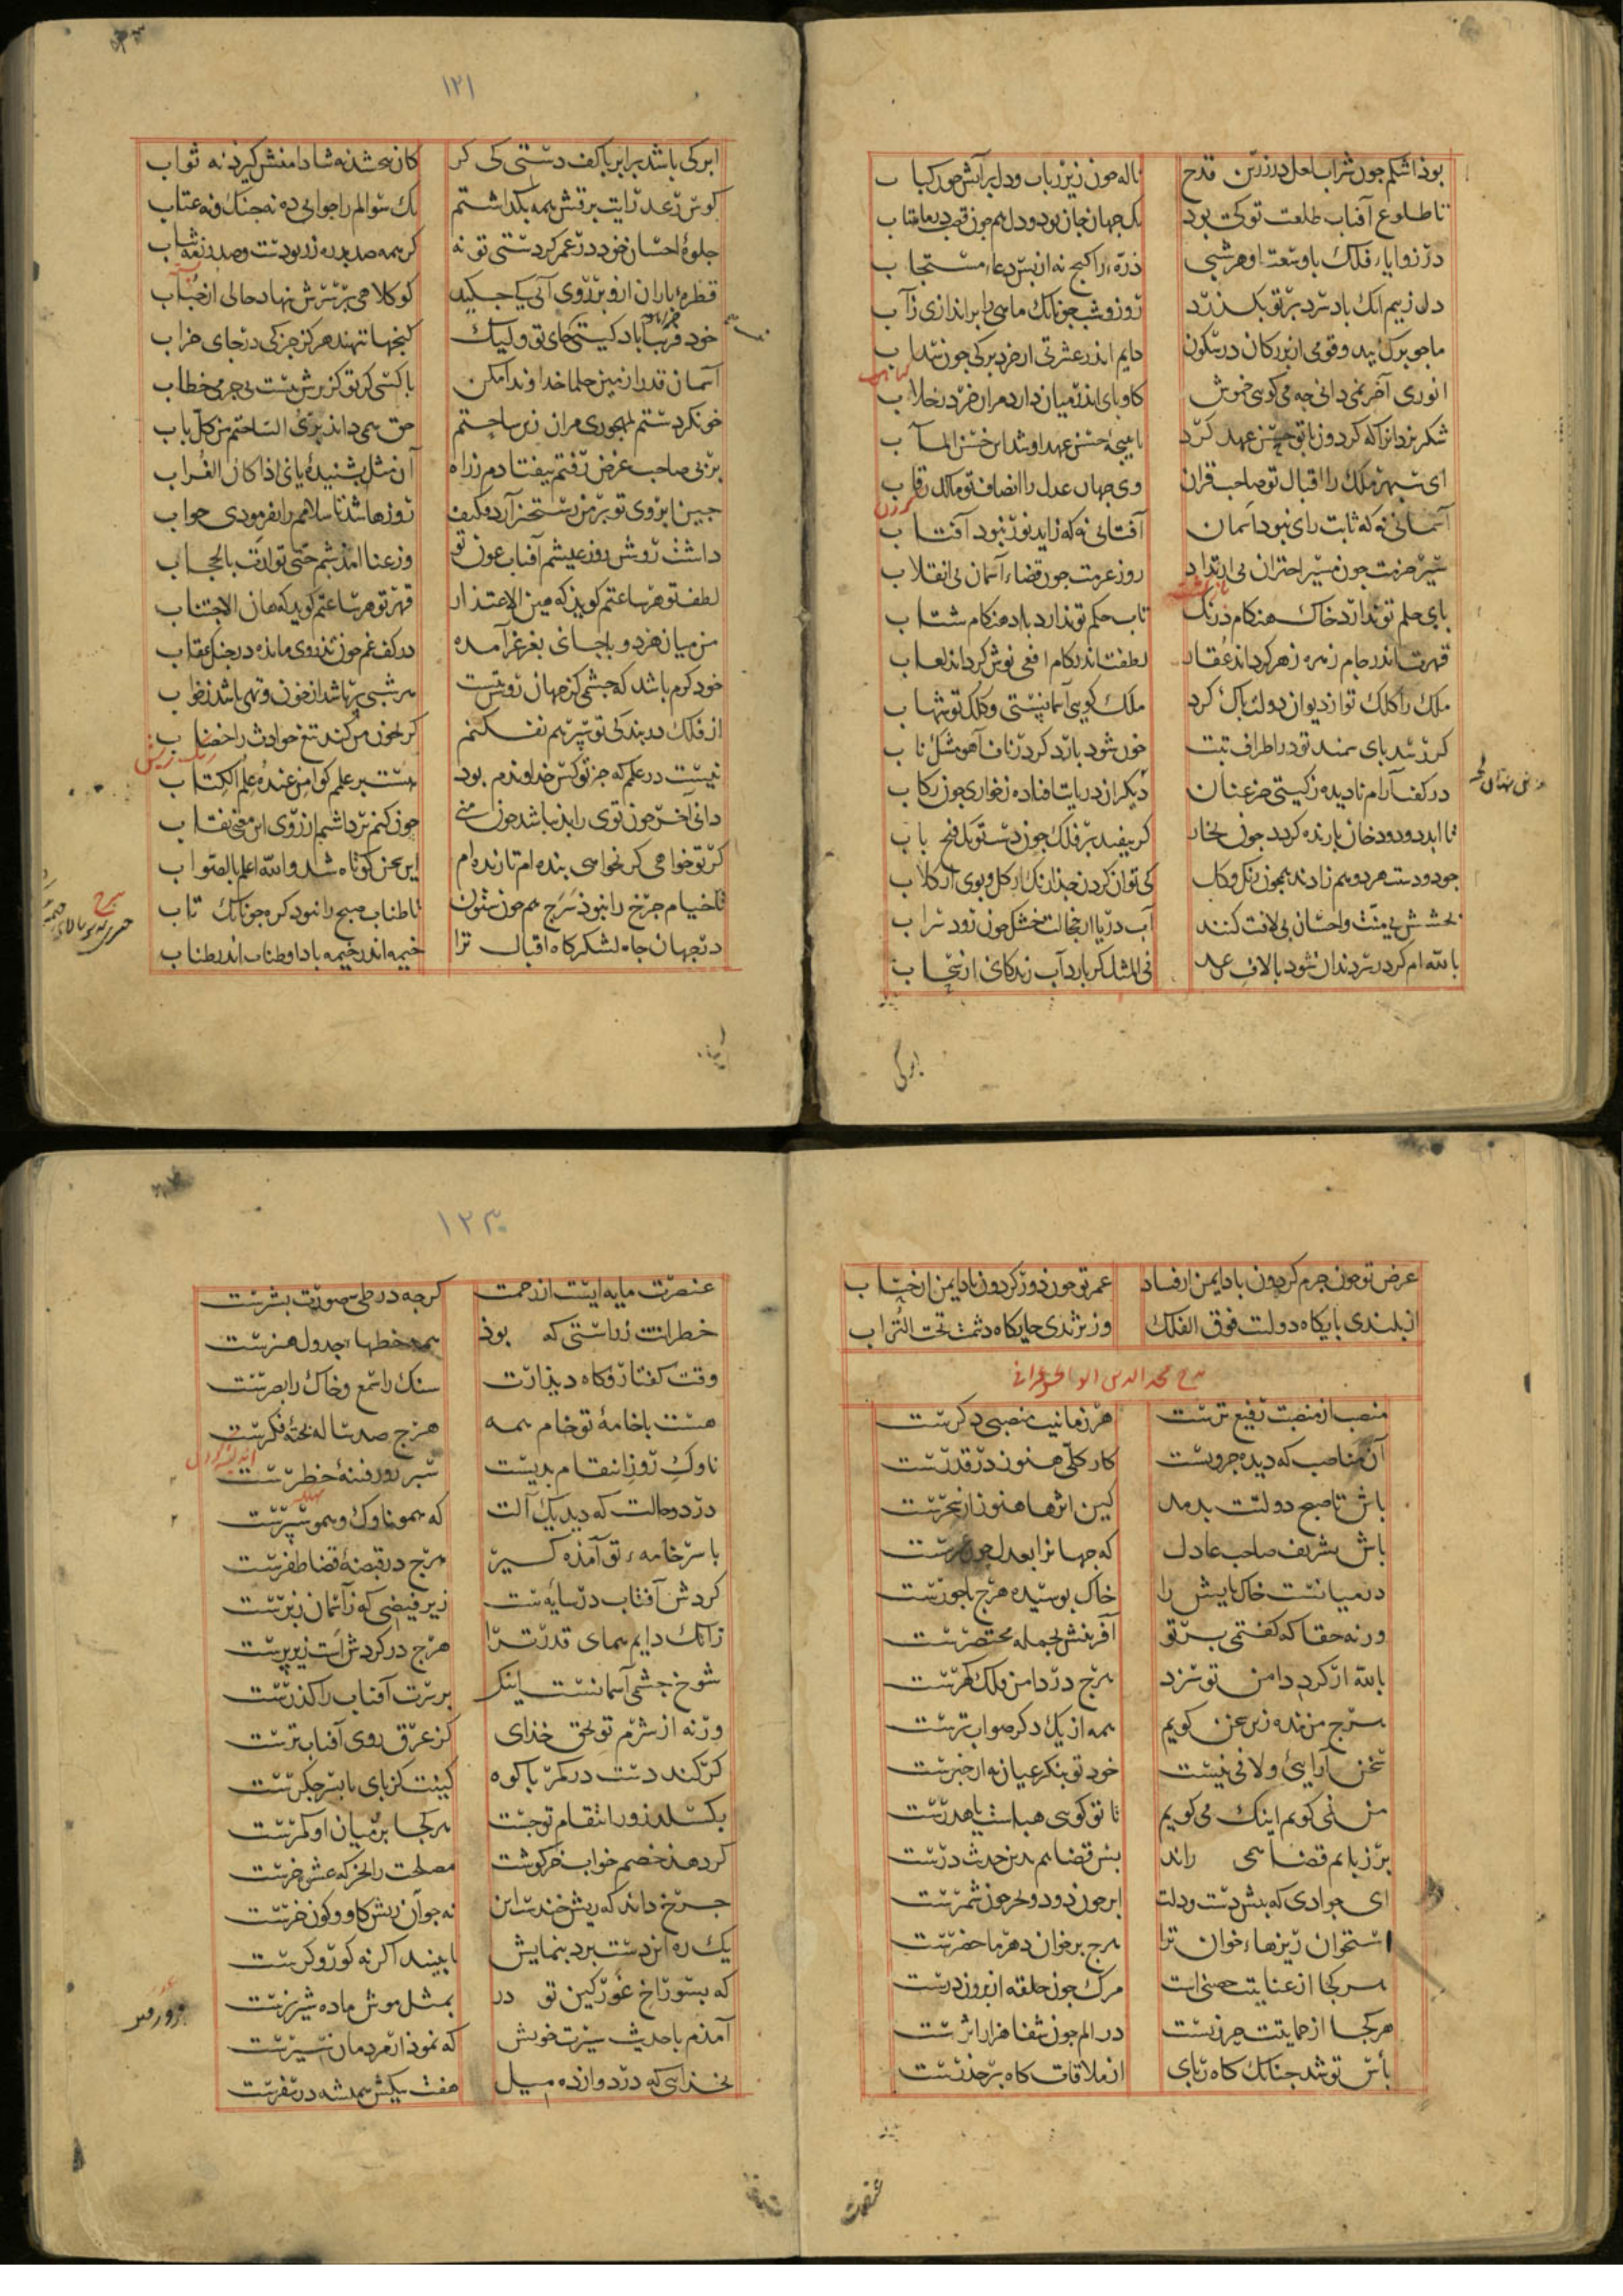 بوذ اشکم جون شراب لعل در زرین قدح ناله جون زیر رباب و دل برآتش جون کباب
تا طلوع آفتاب طلعت تو کی بود یک جهان جان بود و دل هم جون قصب در ماهتاب
در زوایاء فلک با وسعت او هر شبی ذرّه را کنج نه از بس دعاء مستجاب
دل ز بیم انک باد سرد بر تو بکذرذ روز و شب جونانک ماهی را براندازی ز آب
ما جو برک بید و قومی از بزرکان در سکون دایم اندر عشرتی از خرد برکی جون سداب
انوری آخر نمی دانی جه می کویی خموش کاو پای اندر میان دارد مران خر در خلاب
شکر یزدانرا که کردون با تو حسن عهد کرد تا نتیجهٔ حسن عهد او شد این حسن المآب
ای سپهر ملک را اقبال تو صاحب قران وی جهان عدل را انصاف تو مالک رقاب
آسمانی نه که ثابت رای نبود آسمان آفتابی نه که زاید نور نبود آفتاب
سیر حزمت جون مسیر اختران بی ارتداد روز عزمت جون قضاء آسمان بی انقلاب
پای حلم تو ندارد خاک هنکام درنک تاب حکم تو ندارد باد هنکام شتاب
قهرت اندر جام زهره زهر کرداند عقار لطفت اندر کام افعی نوش کرداند لعاب
ملک را کلک تو از دیوان دولت پاک کرد ملک کویی آسمانستی و کلک تو شهاب
کر رسد پای سمند تو در اطراف تبت خون شود بار دکر در ناف آهو مشک ناب
در کفت آرام نادیده ز کیتی جز عنان دیکران در پایت افتاده ز خواری جون رکاب
تا ابد دود و دخان بارنده کردد جون بخار کر بیفتد بر فلک جون دست تو یک فتح باب
جود و دستت هر دو هم زادند همجون رنک و کل کی توان کردن جذا رنک از کل و بوی از کلاب
بخشش بی منت و احسان بی لافت کنند آب دریا از خجالت خشک جون روذ سراب
بالله ام کر در سر دندان شود با لاف رعد فی المثل کر بارد آب زندکانی از سحاب
ابر کی
ابر کی باشد برابر با کف دستی کی کر کان ببخشد نه شا دامنش کیرد نه ثواب
کوس رعد و رایت برقش همه بکذاشتم یک سؤالم را جوابی ده نه جنک و نه عتاب
جلوهٔ احسان خود در عمر کردستی تو نه کر همه صد بدره زر بودست و صد رزمه ثیاب
قطرهٔ باران ازو بر روی آبی کی جکید کو کلاهی بر سرش نهاد حالی از حباب
آسمان قدرا زمین حلما خداوندا مکن با کسی کز تو کزیرش نیست بی جرمی خطاب
خو نکردستم بمهجوری مران زین ساحتم حق همی داند بری الساحتم من کل باب
بر پی صاحب غرض رفتم بیفتادم ز راه آن مثل نشنیدهٔ یا فی اذا کان الغراب
جین ابروی تو بر من رستخیز آرد فکیف روزها شد تا سلامم را نفرمودی جواب
داشت روشن روز عیشم آفتاب عون تو وز عنا امذ شبم حتی توارت بالحجاب
لطف تو هر ساعتم کویذ که هین الاعتذار قهر تو هر ساعتم کوید که هان الاجتناب
من میان هر دو با جانی بغرغر آمده در کف غم جون تذروی مانده در جنک عقاب
خود کرم باشد که جشمی کز جهان روشن بتست هر شبی پر باشد از خون و تهی باشد ز خواب
از فلک در بندکی تو سپر هم نفکنم کر بخون من کند تیغ حوادث را خضاب
نیست در علمم که جز تو کس خداوندم بود هست بر علمم کوا من عنده علم الکتاب
دانی آخر جون توی را بد نباشد جون منی جون کنم برداشتم از روی این معنی نقاب
کر تو خواهی کر نخواهی بنده ام تا زنده ام این سخن کوتاه شد والله اعلم بالصواب
تا خیام جرخ را نبوذ شرج هم جون ستون تا طناب صبح را نبود کره جونانک تاب
در جهان جاه لشکرکاه اقبال ترا خیمه اندر خیمه باد اوطناب اندر طناب
۱۲۱
عرض تو جون جرم کردون باد ایمن از فساد عمر تو جون دور کردون باد ایمن از حساب
از بلندی پایکاه دولتت فوق الفلک وز نژندی جایکاه دشمنت تحت التراب
مدح مجد الدین ابو الحسن عمرانی
منصب از منصبت رفیع ترست هر زمانیت منصبی دکرست
آن مناصب که دیده جزویست کار کلی هنوز در قدرست
باش تا صبح دولتت بدمد کین اثرها هنوز از سحرست
باش بشریف صاحب عادل که جهانرا بعدل جون عمرست
در میانست خاک پایش را خاک بوسیده هرج جانورست
ورنه حقا که کفتمی بر تو آفرینش بجمله مختصرست
بالله ار کرد دامن تو سزد هرج در دامن فلک کهرست
هرج من بنده زین سخن کویم همه از یک دکر صواب ترست
سخن آرایی و لافی نیست خود تو بنکر عیان نه از خبرست
من نمی کویم اینک می کویم تا تو کویی هباست یا هدرست
بر زبانم قضا همی راند بس قضا هم بدین حدیث درست
ای جوادی که پیش دست و دلت ابر جون دود و بحر جون شمرست
استخوان ریزهاء خوان ترا هرج بر خوان دهر ماحضرست
هر کجا از عنایتت حصنی است مرک جون حلقه از برون درست
هر کجا از حمایتت حرزیست در الم جون شفا هزار اثرست
بأس تو شد جنانک کاه ربای از ملاقات کاه بر حذرست
عنصرت
۱۲۳
عنصرت مایه ایست از رحمت کرجه در طی صورت بشرست
خطرات ز راستی که بوذ همه خطها جدول هنرست
وقت کفتار و کاه دیدارت سنک را سمع و خاک را بصرست
هست با خامهٔ تو خام همه هرج صد ساله پختهٔ فکرست
ناوک روز انتقام بدیست سپر روز فتنهٔ خطرست
در دو حالت که دید یک آلت که همو ناوک و همو سپرست
با سر خامهٔ تو آمذه کیر هرج در قبضهٔ قضا ظفرست
کردش آفتاب در سایه ت زیر فیضی که ز آسمان زبرست
زانک دایم همای قدر ترا هرج در کردش است زیر پرست
شوخ جشمی آسمانست اینک بر سرت آفتاب را کذرست
ورنه از شرم تو بحق خذای کز عرق روی آفتاب ترست
کر کند دست در کمر با کوه کینت کز پای تا بسر جکرست
بکسلد زور انتقام تو جست هر کجا بر میان او کمرست
کر دهد خصم خواب خرکوشت مصلحت را بخر که عشوه خرست
جرخ داند که ریش خندست این نه جو آن ریش کاو و کون خرست
یک ره این دستبرد بنمایش تا ببیند اکر نه کور و کرست
که بسوراخ غور کین تو در بمثل موش ماده شیر نرست
آمذم با حدیث سیرت خویش که نموذار مردمان سیرست
بخذایی که در دوازده میل هفت پیکش همیشه در سفرست